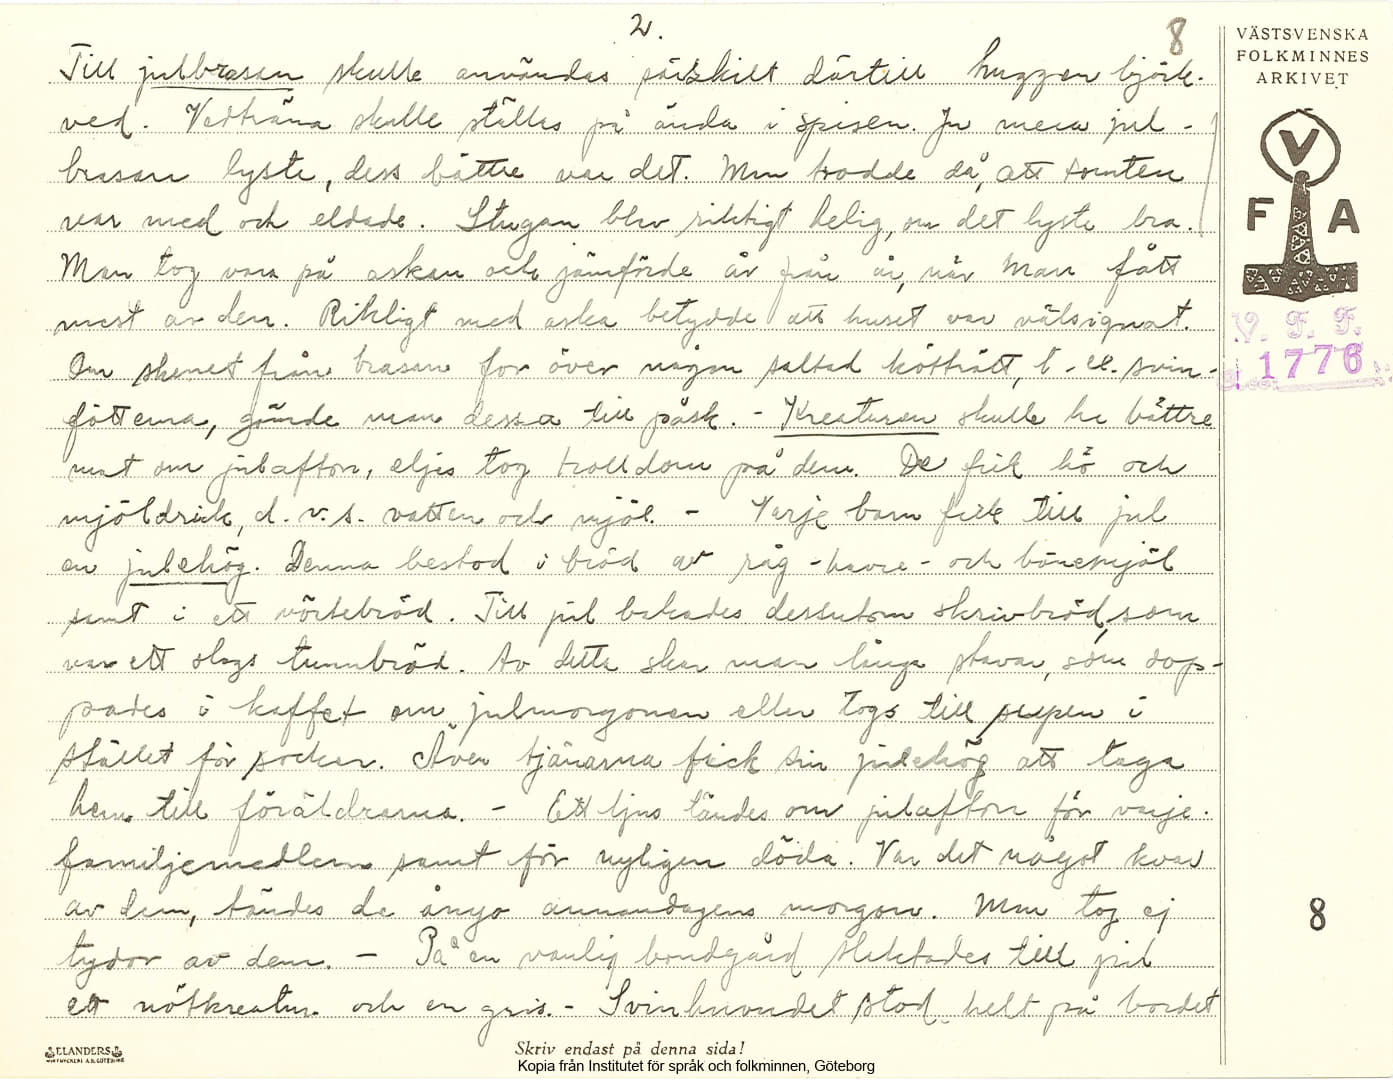 2.
8
VÄSTSVENSKA
FOLKMINNES
ARKIVET
V
F A
V. F. F.
1776
8
Till julbrasan skulle användas särskilt därtill huggen björk-
ved. Vedträna skulle ställas på ända i spisen. Ju mera jul-
brasan lyste, dess bättre var det. Man trodde då, att tomten
var med och eldade. Stugan blev riktigt helig, om det lyste bra.
Man tog vara på askan och jämförde år från år, när man fått
mest av den. Rikligt med aska betydde att huset var välsignat.
Om skenet från brasan for över någon saltad kötträtt, t. ex. svin-
fötterna, gömde man dessa till påsk. - Kreaturen skulle ha bättre
mat om julafton, eljes tog trolldom på dem. De fick hö och
mjöldrick, d.v.s. vatten och mjöl. - Varje barn fick till jul
en julehög. Denna bestod i bröd av råg- havre- och bönemjöl
samt i ett vörtebröd. Till jul bakades dessutom skrivbröd, som
var ett slags tunnbröd. Av detta skar man långa stavar, som dop-
pades i kaffet om julmorgonen eller togs till supen i
stället för socker. Även tjänarna fick sin julehög att taga
hem till föräldrarna. - Ett ljus tändes om julafton för varje
familjemedlem samt för nyligen döda. Var det något kvar
av dem, tändes de ånyo annandagens morgon. Man tog ej
tydor av dem. - På en vanlig bondgård slaktades till jul
ett nötkreatur och en gris. - Svinhuvudet stod helt på bordet
ELANDERS
Skriv endast på denna sida!
Kopia från Institutet för språk och folkminnen, Göteborg